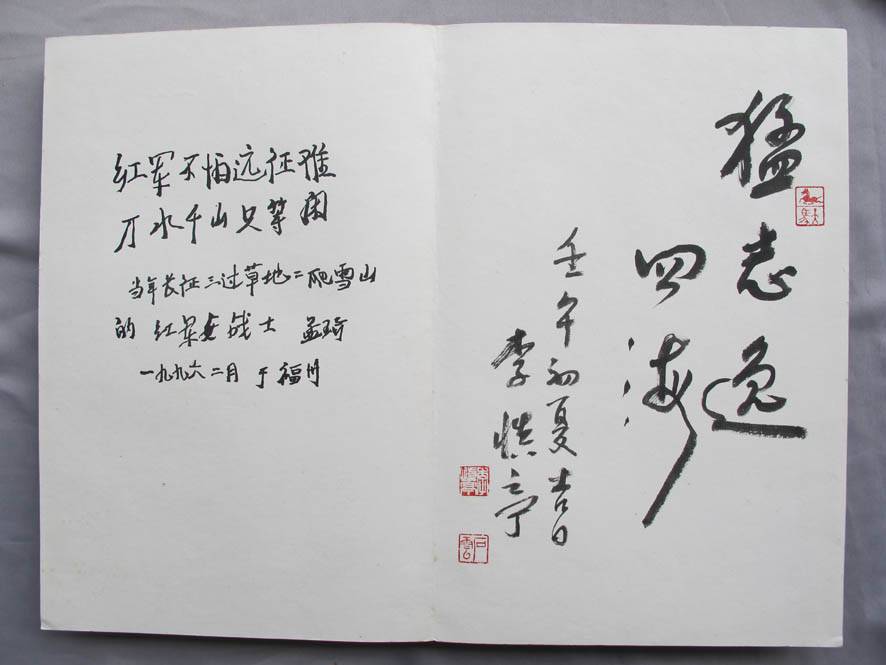 红军不怕远征难
万水千山只等闲
当年长征三过草地二爬雪山
的红军女战士 孟瑜
一九九六二月于福州
猛志逸
四海
壬午初夏吉日
李慎